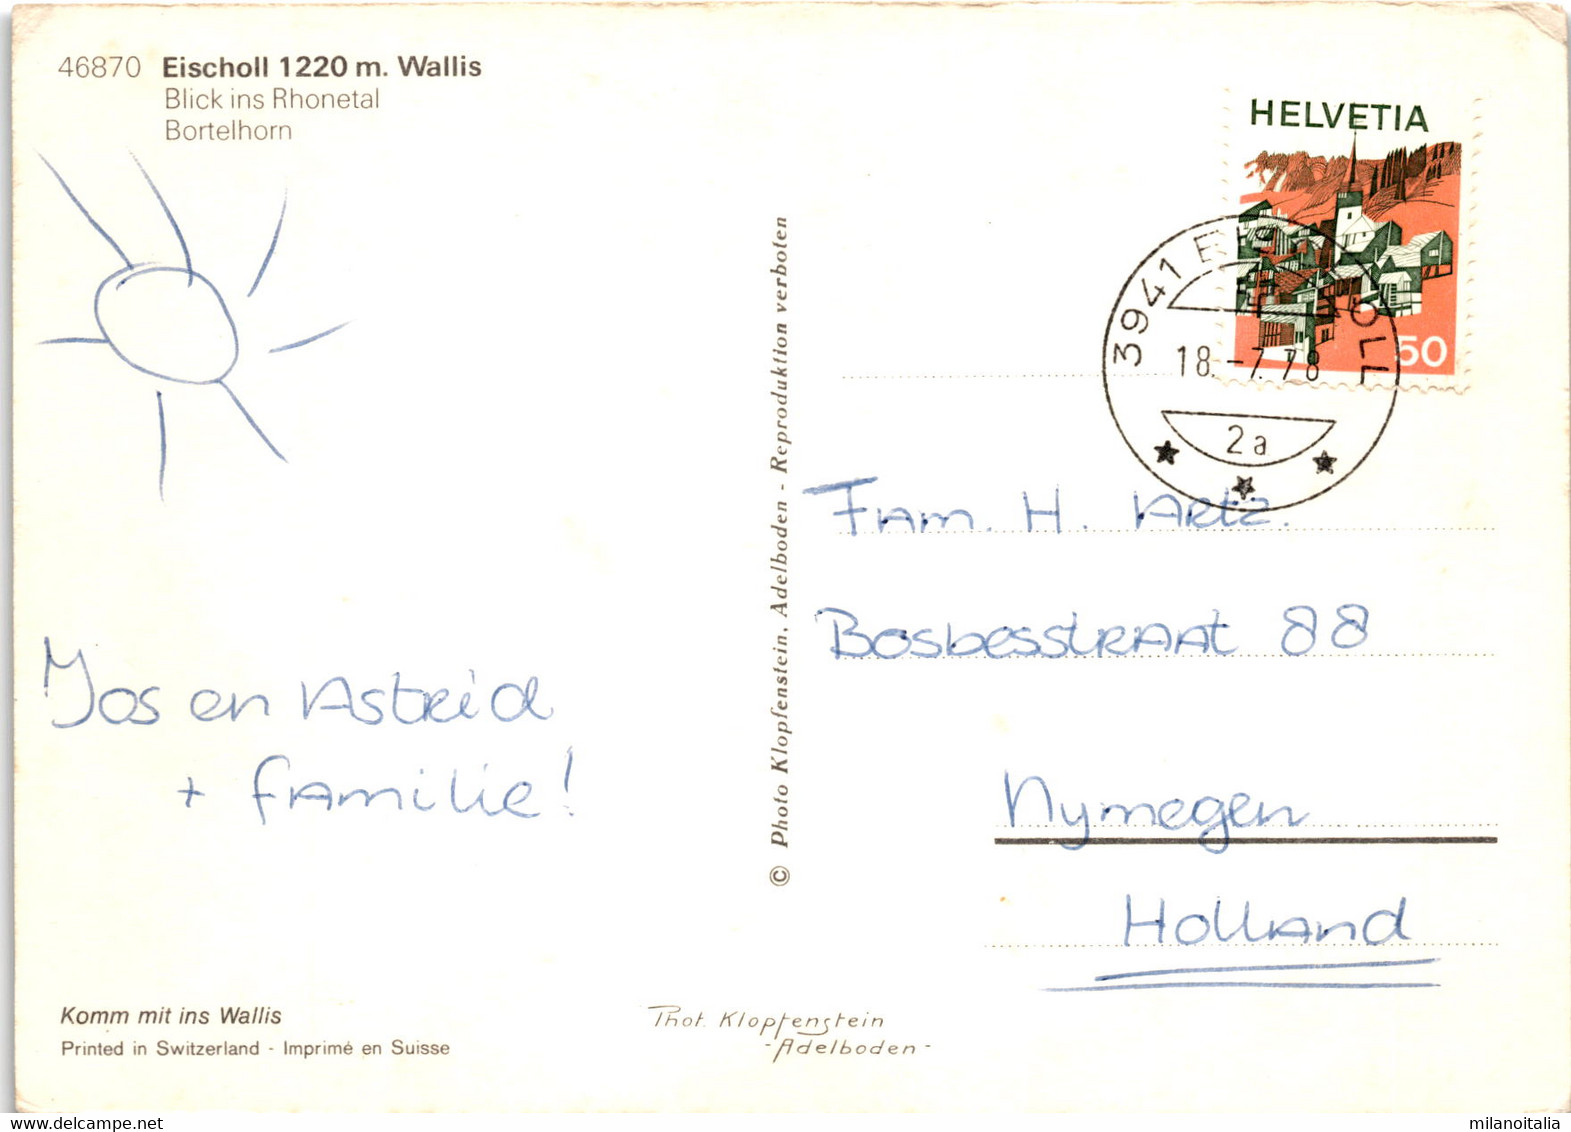 46870 Eischoll 1220 m. Wallis
Blick ins Rhonetal
Bortelhorn
HELVETIA
50
3941 EISCHOLL
18.-7.78
2a
Jos en Astrid
+ familie!
© Photo Klopfenstein, Adelboden - Reproduktion verboten
Fam. H. Artz.
Bosbesstraat 88
Nymegen
Holland
Komm mit ins Wallis
Printed in Switzerland - Imprimé en Suisse
Phot. Klopfenstein
- Adelboden -
milanoitalia